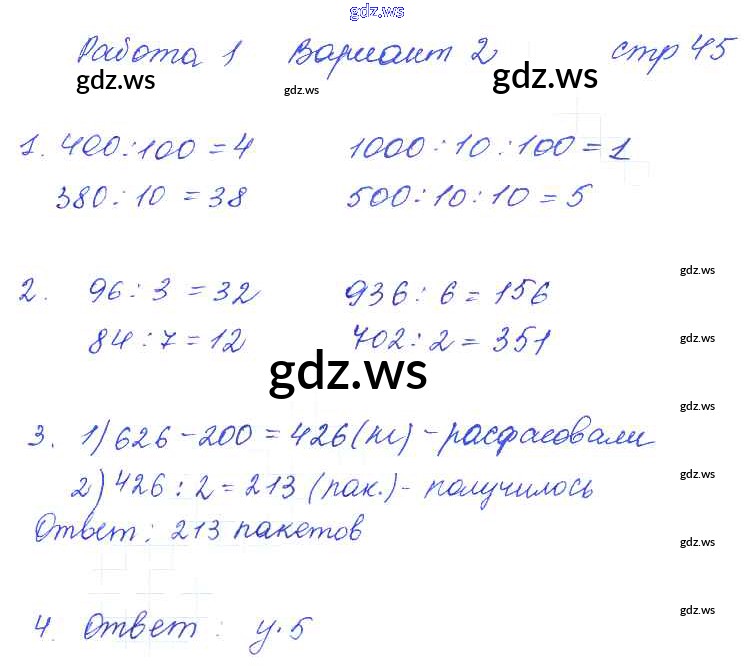 gdz.ws
Работа 1 Вариант 2 стр 45
gdz.ws gdz.ws gdz.ws
1. 400:100 = 4 1000:10:100 = 1
380:10 = 38 500:10:10 = 5
gdz.ws
2. 96:3 = 32 936:6 = 156
84:7 = 12 702:2 = 351
gdz.ws
gdz.ws
gdz.ws
3. 1) 626 - 200 = 426 (кг) - расфасовали
gdz.ws
2) 426:2 = 213 (пак.) - получилось
Ответ: 213 пакетов
gdz.ws
gdz.ws
4. Ответ: у·5